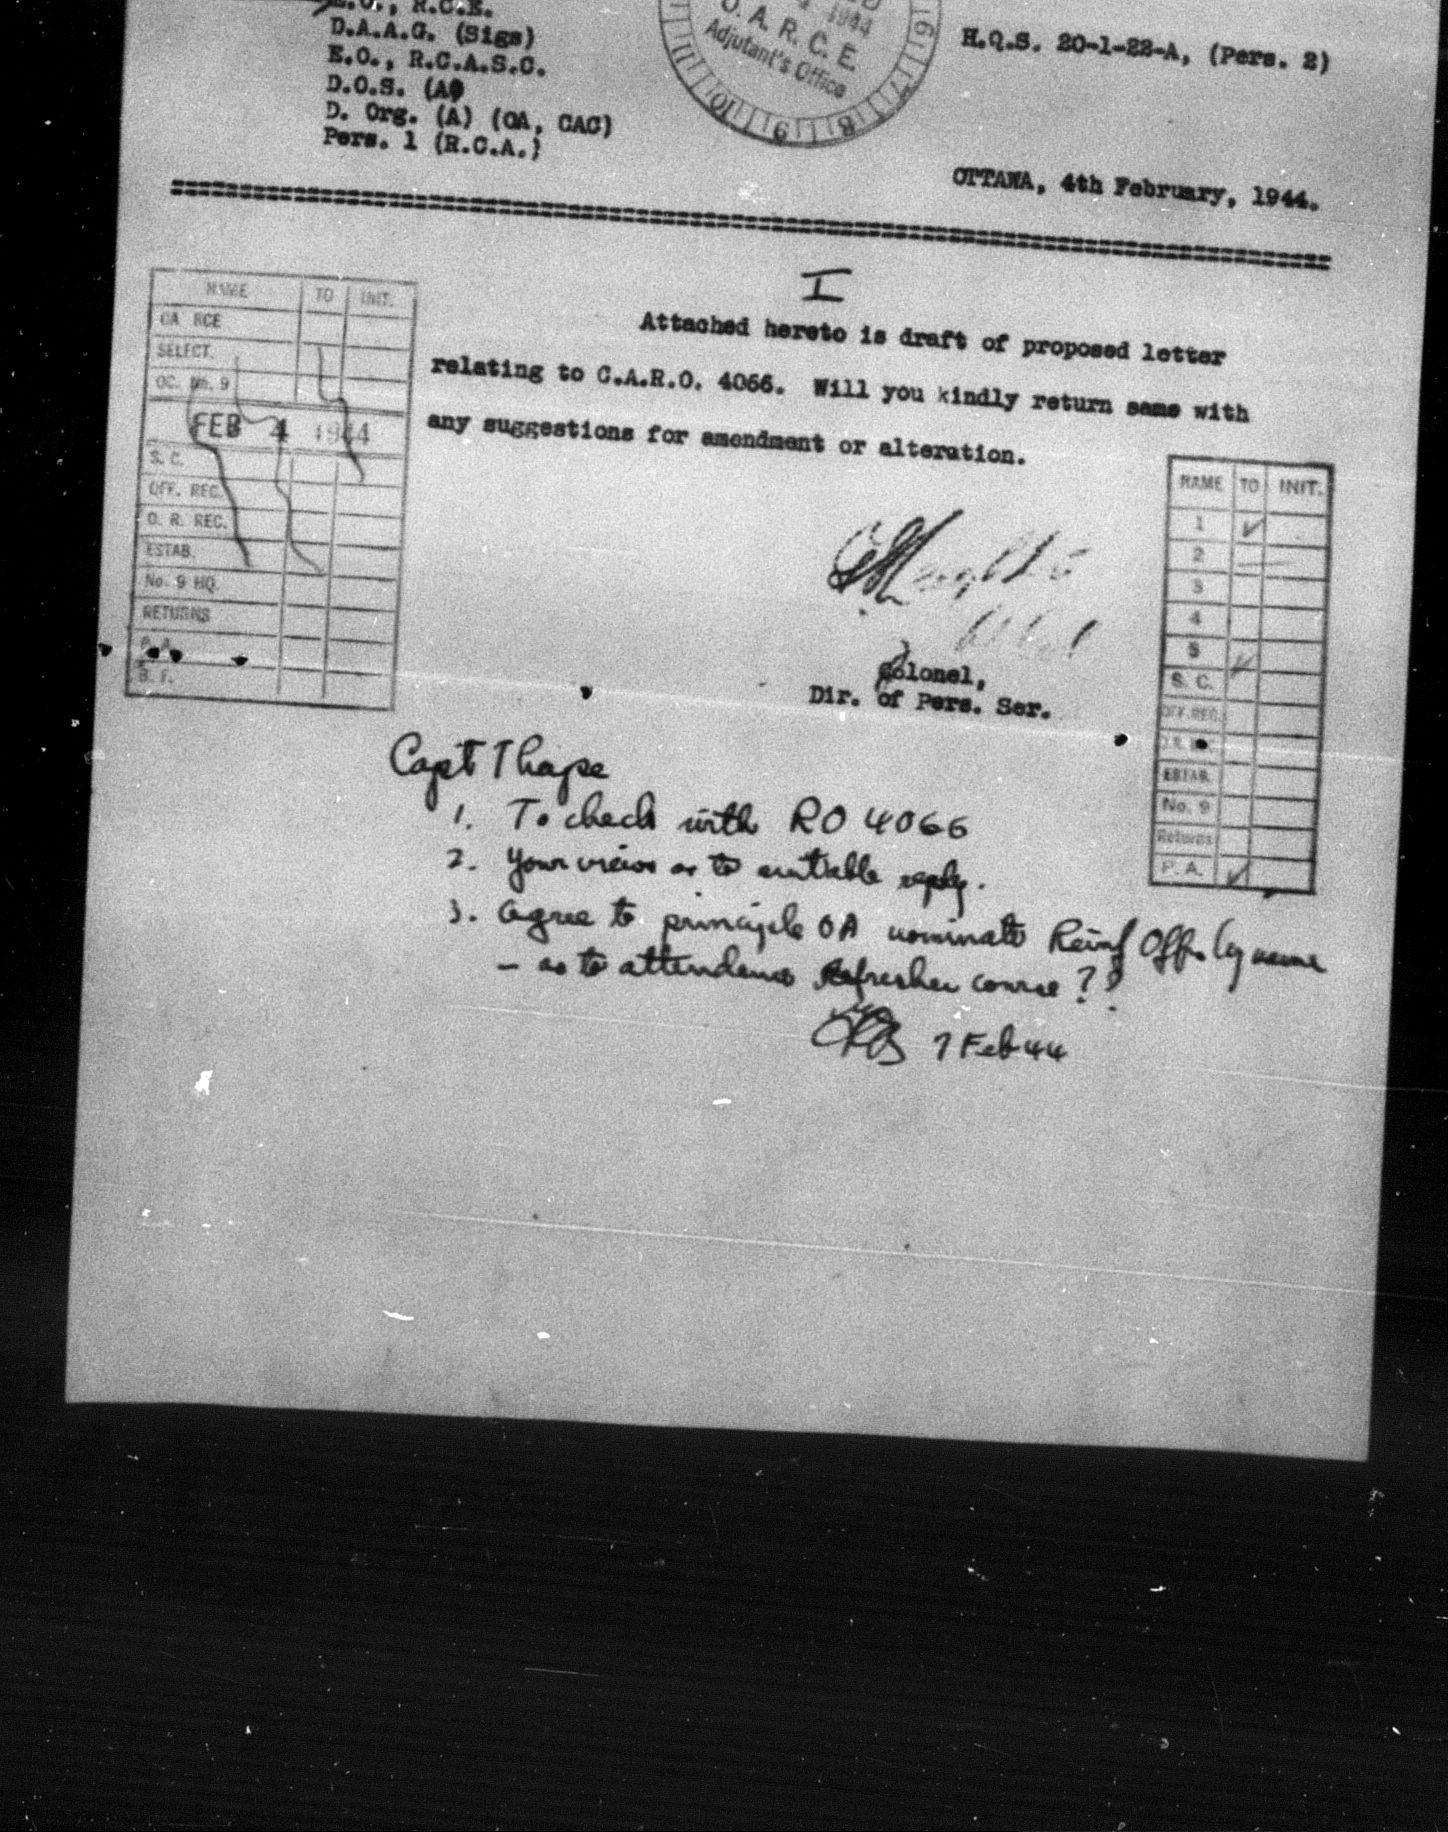 E.O., R.C.E.
D.A.A.G. (Sigs)
E.O., R.C.A.S.C.
D.O.S. (A)
D. Org. (A) (OA, CAC)
Pers. 1 (R.C.A.)
1944
O. A. R. C. E.
Adjutant's Office
6 7 8 9 10 11
H.Q.S. 20-1-22-A, (Pers. 2)
OTTAWA, 4th February, 1944.
I
Attached hereto is draft of proposed letter
relating to C.A.R.O. 4066. Will you kindly return same with
any suggestions for amendment or alteration.
NAME TO INIT.
OA RCE
SELECT.
OC. No. 9
FEB 4 1944
S. C.
OFF. REC.
O. R. REC.
ESTAB.
No. 9 HQ.
RETURNS
P. A.
B. F.
Colonel,
Dir. of Pers. Ser.
NAME TO INIT.
1 ✓
2
3
4
5 ✓
S. C.
OFF. REC.
ESTAB.
No. 9
Returns
P. A. ✓
Capt Thorpe
1. To check with RO 4066
2. Your views as to suitable reply.
3. Agree to principle OA nominate Reinf Offrs by name
— as to attendance Refresher course??
7 Feb 44